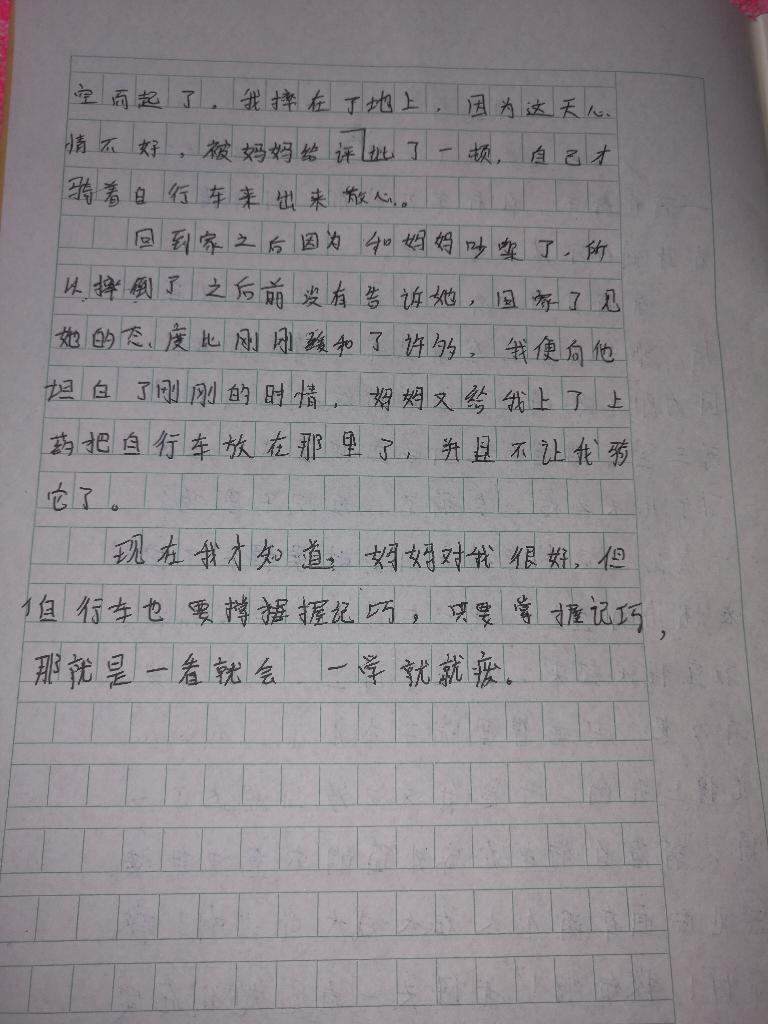 空而起了。我摔在了地上，因为这天心
情不好，被妈妈给评批了一顿，自己才
骑着自行车来出来散心。
回到家之后因为和妈妈吵架了，所
以摔倒了之后前没有告诉她，回家了见
她的态度比刚刚缓和了许多，我便向他
坦白了刚刚的时情，妈妈又给我上了上
药把自行车放在那里了，并且不让我骑
它了。
现在我才知道，妈妈对我很好，但
自行车也要掌握记巧，只要掌握记巧，
那就是一看就会 一学就就废。